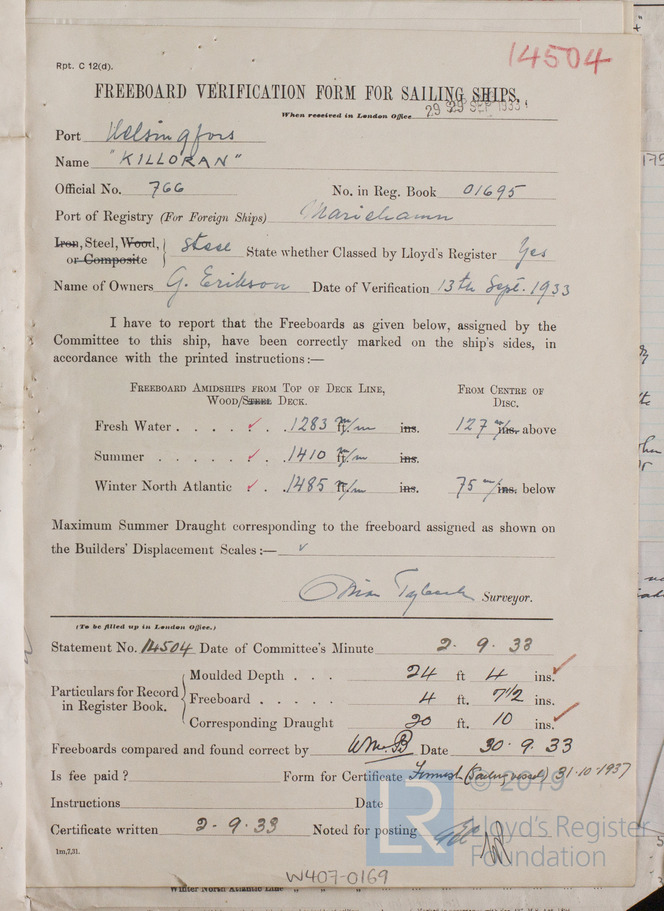 14504
Rpt. C 12(d).
FREEBOARD VERIFICATION FORM FOR SAILING SHIPS.
When received in London Office 29 SEP 1933
Port Helsingfors
Name "KILLORAN"
Official No. 766 No. in Reg. Book 01695
Port of Registry (For Foreign Ships) Mariehamn
Iron, Steel, Wood, or Composite } Steel State whether Classed by Lloyd's Register Yes
Name of Owners G. Erikson Date of Verification 13th Sept. 1933
I have to report that the Freeboards as given below, assigned by the
Committee to this ship, have been correctly marked on the ship's sides, in
accordance with the printed instructions:—
FREEBOARD AMIDSHIPS FROM TOP OF DECK LINE, FROM CENTRE OF
WOOD/STEEL DECK. DISC.
Fresh Water . . . . ✓ . . 1283 m/m ft. ins. 127 m/m ins. above
Summer . . . . . ✓ . . 1410 m/m ft. ins.
Winter North Atlantic ✓ . . 1485 m/m ft. ins. 75 m/m ins. below
Maximum Summer Draught corresponding to the freeboard assigned as shown on
the Builders' Displacement Scales:— ✓
Surveyor.
(To be filled up in London Office.)
Statement No. 14504 Date of Committee's Minute 2. 9. 33
Particulars for Record in Register Book. { Moulded Depth . . . 24 ft 4 ins. ✓
Freeboard . . . . . 4 ft. 7 1/2 ins.
Corresponding Draught 20 ft. 10 ins. ✓
Freeboards compared and found correct by WMB Date 30. 9. 33
Is fee paid ? Form for Certificate Finnish (Sailing vessel) 31.10.1937
Instructions Date
Certificate written 2-9.33 Noted for posting
1m,7,31.
© 2019
LR
Lloyd's Register
Foundation
W407-0169
Winter North Atlantic Line